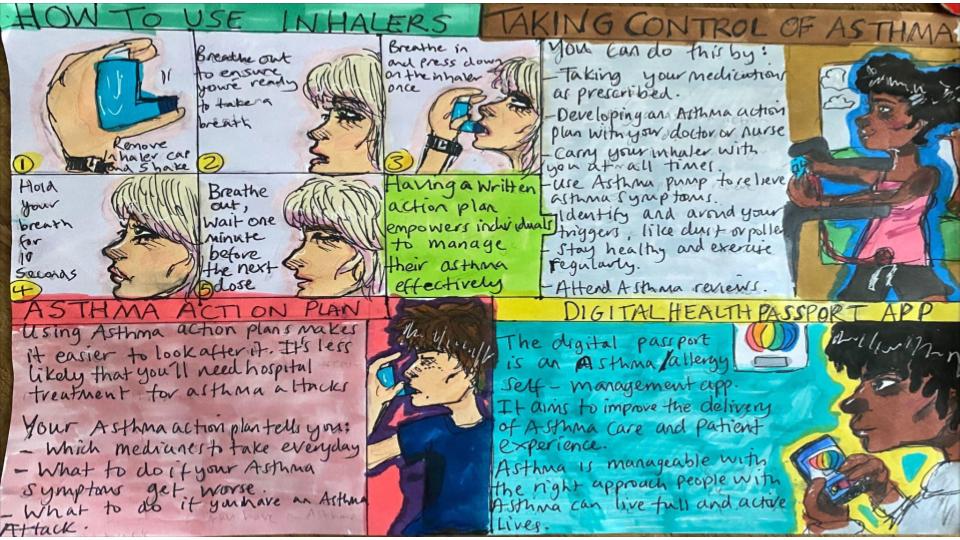 HOW TO USE INHALERS
1
Remove
inhaler cap
and shake
2
Breathe out
to ensure
you're ready
to take a
breath
3
Breathe in
and press down
on the inhaler
once
4
Hold
your
breath
for
10
Seconds
5
Breathe
out,
wait one
minute
before
the next
dose
Having a written
action plan
empowers individuals
to manage
their asthma
effectively
TAKING CONTROL OF ASTHMA
You can do this by:
- Taking your medications
as prescribed.
- Developing an Asthma action
plan with your doctor or nurse
- Carry your inhaler with
you at all times.
- use Asthma pump to relieve
asthma symptoms.
- Identify and avoid your
triggers, like dust or pollen
- stay healthy and exercise
regularly.
- Attend Asthma reviews.
ASTHMA ACTION PLAN
Using Asthma action plans makes
it easier to look after it. It's less
likely that you'll need hospital
treatment for asthma attacks
Your Asthma action plan tells you:
- Which medicines to take everyday
- What to do if your Asthma
symptoms get worse
- What to do if you have an Asthma
Attack.
DIGITAL HEALTH PASSPORT APP
The digital passport
is an Asthma/allergy
self-management app.
It aims to improve the delivery
of Asthma care and Patient
experience.
Asthma is manageable with
the right approach people with
Asthma can live full and active
Lives.